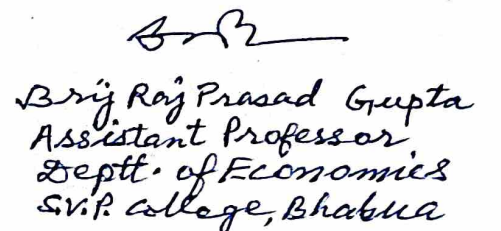 Brij Raj Prasad Gupta
Assistant Professor
Deptt. of Economics
S.V.P. College, Bhabua